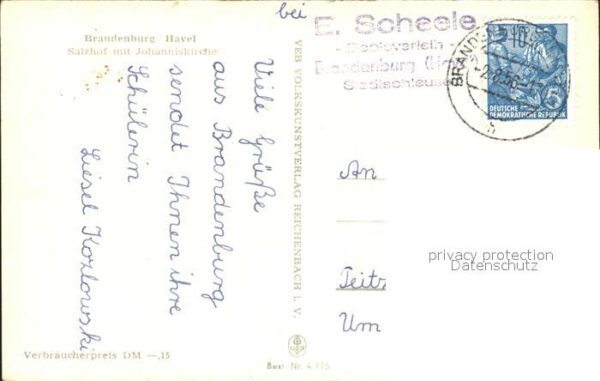 Brandenburg Havel
Salzhof mit Johanniskirche
Viele Grüße
aus Brandenburg
sendet Ihnen ihre
Schülerin
Liesel Kozlowski
Verbraucherpreis DM —,15
VEB VOLKSKUNSTVERLAG REICHENBACH I. V.
Best. Nr. 4 115
bei
E. Scheele
- Bootsverleih -
Brandenburg
Stadtschleuse
BRANDE
DEUTSCHE
DEMOKRATISCHE REPUBLIK
5
An
Teitz
Um
privacy protection
Datenschutz